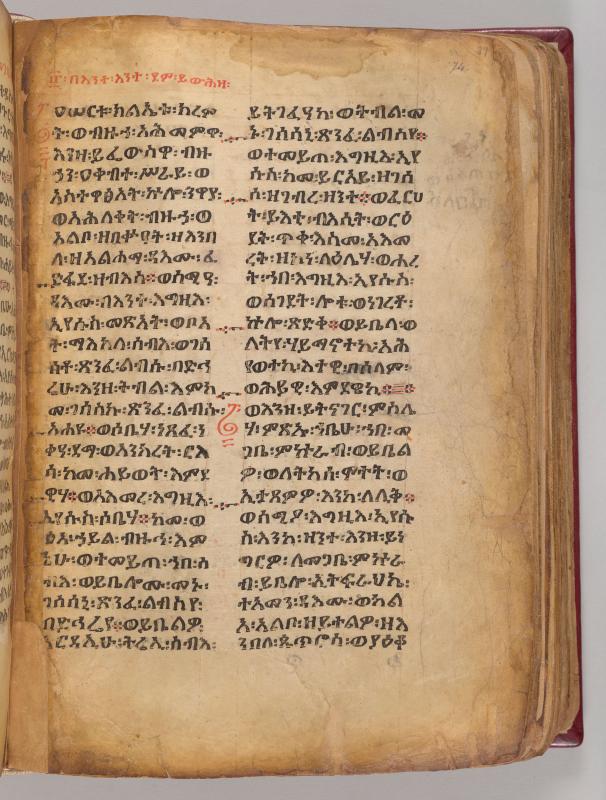 ፲፪፡በእንተ፡እንተ፡ደም፡ይውሕዛ፡
ዐሠርቱ፡ክልኤቱ፡ክረም
ት፡ወብዙኃ፡አሕመምዋ፡
እንዘ፡ይፌውስዋ፡ብዙ
ኃን፡ዐቀብተ፡ሥራይ፡ወ
አስተዋፅአት፡ኵሎ፡ንዋያ፡
ወአሕለቀት፡ብዙኃ፡ወ
አልቦ፡ዘበቍዖት፡ዘእንበ
ለ፡ዘአልሐማ፡ዳእሙ፡ፈ
ድፈደ፡ዘብእስ፨ወሰሚዓ፡
ዳእሙ፡በእንተ፡እግዚእ፡
ኢየሱስ፡መጽአት፡ወቦአ
ት፡ማእከለ፡ሰብእ፡ወገሰ
ሰት፡ጽንፈ፡ልብሱ፡በድኅ
ሬሁ፡እንዘ፡ትብል፡እምከ
መ፡ገሰስኩ፡ጽንፈ፡ልብሱ፡
አሐዩ፨ወሶቤሃ፡ነጸፈ፡ነ
ቅዓ፡ደማ፡ወአንከረት፡ርእ
ሳ፡ከመ፡ሐይወት፡እምደ
ዌሃ፨ወአእመረ፡እግዚእ፡
ኢየሱስ፡ሶቤሃ፨ከመ፡ወ
ፅአ፡ኃይል፡ብዙኅ፡እም
ኔሁ፡ወተመይጠ፡ኀበ፡ሰ
ብእ፡ወይቤሎሙ፡መኑ፡
ገሰሰኒ፡ጽንፈ፡ልብስየ፡
በድኅሬየ፨ወይቤልዎ፡
አርዳኢሁ፡ትሬኢ፡ሰብአ፡
ይትገፈዓከ፡ወትብል፡መ
ኑ፡ገሰሰኒ፡ጽንፈ፡ልብስየ፨
ወተመይጠ፡እግዚእ፡ኢየ
ሱስ፡ከመ፡ይርአይ፡ዘገሰ
ሰ፡ዘገብረ፡ዘንተ፨ወፈርሀ
ት፡ይእቲ፡ብእሲት፡ወርዕ
ደት፡ጥቀ፡እስመ፡አእመ
ረት፡ዘከነ፡ላዕሌሃ፡ወሖረ
ት፡ኀበ፡እግዚእ፡ኢየሱስ፡
ወሰገደት፡ሎቱ፡ወነገረቶ፡
ኵሎ፡ጽድቀ፨ወይቤላ፡ወ
ለትየ፡ሃይማኖትኪ፡አሕ
የወተኪ፡እትዊ፡በሰላም፡
ወሕይዊ፡እምደዌኪ፨
ወእንዘ፡ይትናገር፡ምስሌ
ሃ፡ምጽኡ፡ኀቤሁ፡ኀበ፡መ
ገቤ፡ምኵራብ፡ወይቤል
ዎ፡ወለትከሰ፡ሞተት፡ወ
ኢታጻምዎ፡እንከ፡ለሊቅ፨
ወሰሚዖ፡እግዚእ፡ኢየሱ
ስ፡እንከ፡ዘንተ፡እንዘ፡ይነ
ግርዎ፡ለመጋቤ፡ምኵራ
ብ፡ይቤሎ፡ኢትፍራህኬ፡
ተአመን፡ዳእሙ፡ወአል
አ፡አልቦ፡ዘይተልዎ፡ዘእ
ንበለ፡ጴጥሮስ፡ወያዕቆ